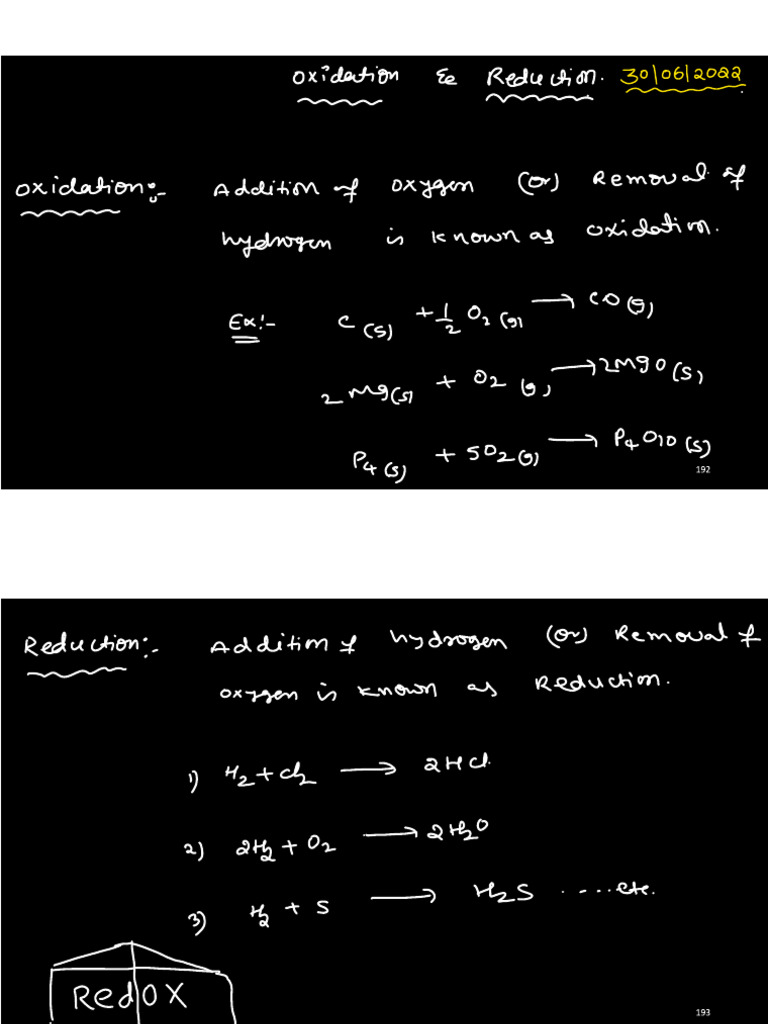 Oxidation & Reduction. 30/06/2022
Oxidation:- Addition of oxygen (or) Removal of
hydrogen is known as oxidation.
Ex:- C(s) + 1/2 O2(g) → CO(g)
2Mg(s) + O2(g) → 2MgO(s)
P4(s) + 5O2(g) → P4O10(s)
192
Reduction:- Addition of hydrogen (or) Removal of
oxygen is known as Reduction.
1) H2 + Cl2 → 2HCl.
2) 2H2 + O2 → 2H2O
3) H2 + S → H2S .....etc.
RedOX
193